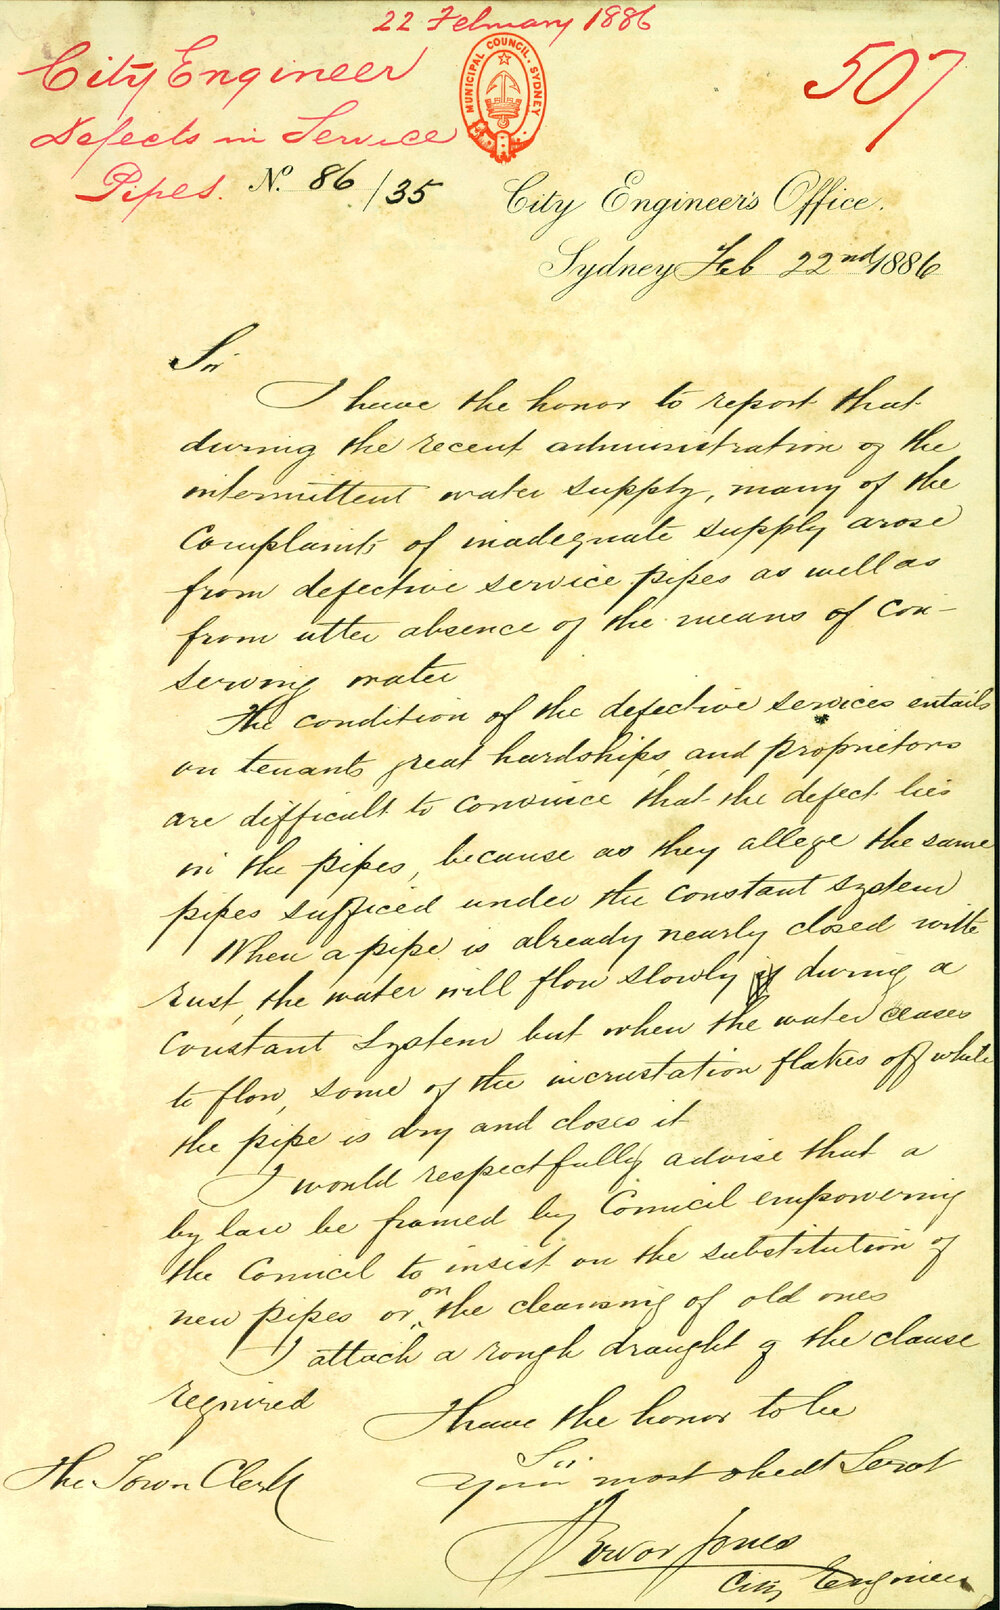 22 February 1886
City Engineer
Defects in Service
Pipes.
507
MUNICIPAL COUNCIL. SYDNEY
No. 86/35
City Engineer's Office.
Sydney Feb 22nd 1886
Sir
I have the honor to report that
during the recent administration of the
intermittent water supply, many of the
Complaints of inadequate supply arose
from defective service pipes as well as
from utter absence of the means of con-
serving water
The condition of the defective services entails
on tenants great hardships, and proprietors
are difficult to convince that the defect lies
in the pipes, because as they allege the same
pipes sufficed under the constant system
When a pipe is already nearly closed with
rust, the water will flow slowly during a
Constant System but when the water ceases
to flow, some of the incrustation flakes off while
the pipe is dry and closes it
I would respectfully advise that a
by law be framed by Council empowering
the Council to insist on the substitution of
new pipes or on the cleansing of old ones
I attach a rough draught of the clause
required
I have the honor to be
Sir
Your most obedt Servt
The Town Clerk
Trevor Jones
City Engineer